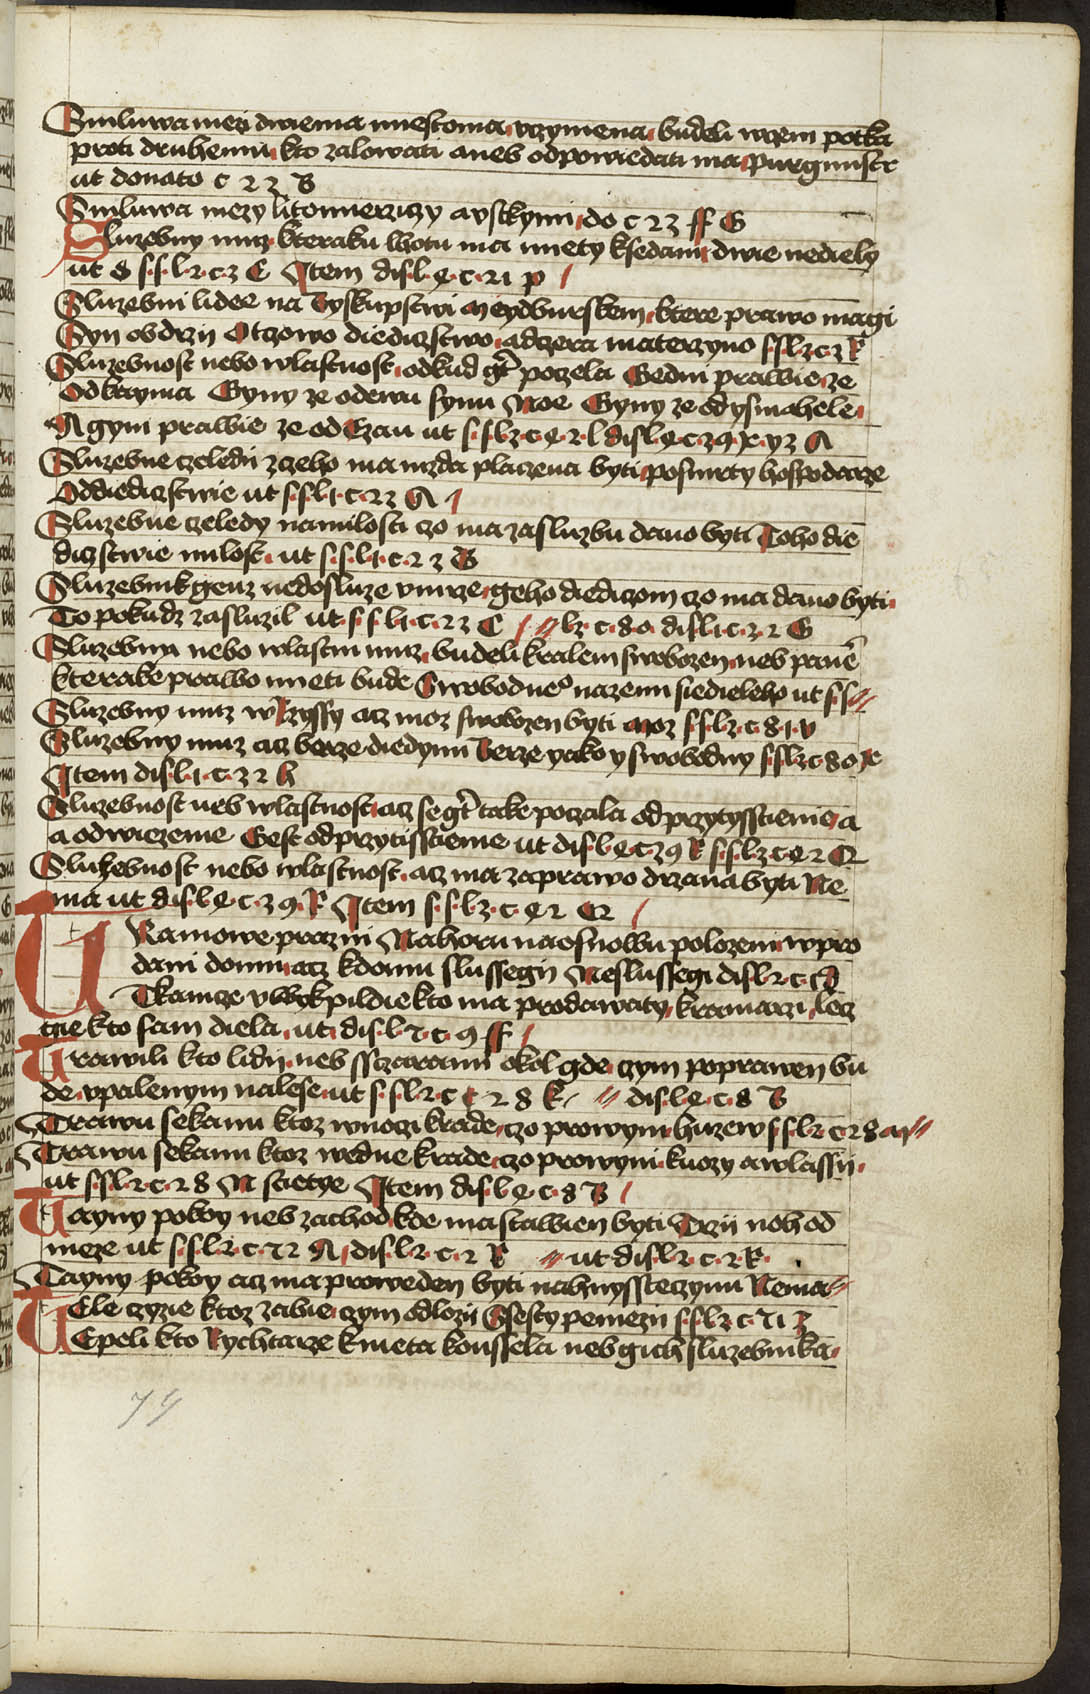 Smluwa mezi dwiema miestoma vczymena budeli wczem potka
proti druhemu kto zalowati aneb odpowiedati ma purgmistr
ut donato c 22 B
Smluwa mezy litomierziczy a vstkymi do c 23 ff G
Sluzebny muz kteraku lhotu ma miety ksedani dwie nediely
ut d s. s. l. 2. c. 3 C Item dis. l. e. c. 21 p
Sluzebni lidee na Byskupstwi Meydburskem ktere prawo magi
Syn obdrzij Otczowo diedicztwo a dczera materzyno s s l 2 c 3 R
Sluzebnost nebo wlastnost odkud gt poczela Gedni prawie ze
Od kayma Gyny ze odewu synu Noe Gyny ze od ysmahele
A gyni prawie ze od Ezau ut s. s. l 3. c. e. 2. l dis l e c 39 x. y 2 A
Sluzebne czeledii z czeho ma mzda placzena byti po smrty hospodarze
Od diedicztwie ut s s l 1. c. 22 A
Sluzebne czeledy namilosti czo ma za sluzbu dano byti Toho die
dicztwie milost ut s. s. l. 1. c. 2 3 B
Sluzebnik genz nedosluze vmrze geho diediczom czo ma dano byti
To pokudz zasluzil ut s s l 1. c. 23 C l 2. c. 80. dis l 1 c. 3. 2 G
Sluzebny nebo wlastni muz budeli kralem swobozen neb pane
kterake prawo mieti bude Swobodne nazemi siedieleho ut s s
Sluzebny muz w Rzyssy acz moz swobozen byti Moz s. s. l 2. c. 8. 1. v
Sluzebny muz acz berze diedynu Berze yako y swobodny s. s. l 2 c. 80
Item dis l. 1. c. 3 2 h
Sluzebnost neb wlastnost acz se gt take poczala od przytysstienie a
a od wiezenie Gest od przytisstienie ut dis l e c 39 R s. s. l 3 c e 2 Q
Sluzebnost nebo wlastnost acz ma za prawo drzana byti Ne
ma ut dis l e c. 3 9. R Item s. s. l. 3. c. e 2 Q
Ramowe prazni Nahoru na osnowu polozeni w pro
dani domu acz kdomu slussegij Neslussegi dis l 2 c c d
Tkamcze v wykpildie kto ma prodawaty kramarzi lecz
tne kto sam diela ut dis. l 2 c. 9 ff
Trawili kto lidij neb ssczarami okol gde czym poprawen bu
de vpalenym nalese ut s. s. l 2 c c 2 8 k dis. l e. c. 8 B
Trawu sekanu ktoz wnoczi krade czo prowyni huzew s s l 2 c 2 8
Trawu sekanu ktoz wedne krade czo prowyni kuozy a wlassy
ut s. s l. 2. c. 2 8 M scietye Item dis. l e. c. 8 B
Tayny pokoy neb zachod kde ma stawien byti Trzij noh od
meze ut s. s. l. 2. c. 72 A dis. l 2. c. 2 R ut dis. l 2. c. 2 R
Tayny pokoy acz ma proweden byti nahnyssteczynu Nema
Tele czyzie ktoz zabie czym odlozij Ssesty peniezij s. s. l 2 c 71 Z
Tepeli kto Rychtarze kmeta konssela neb gich sluzebnika
74